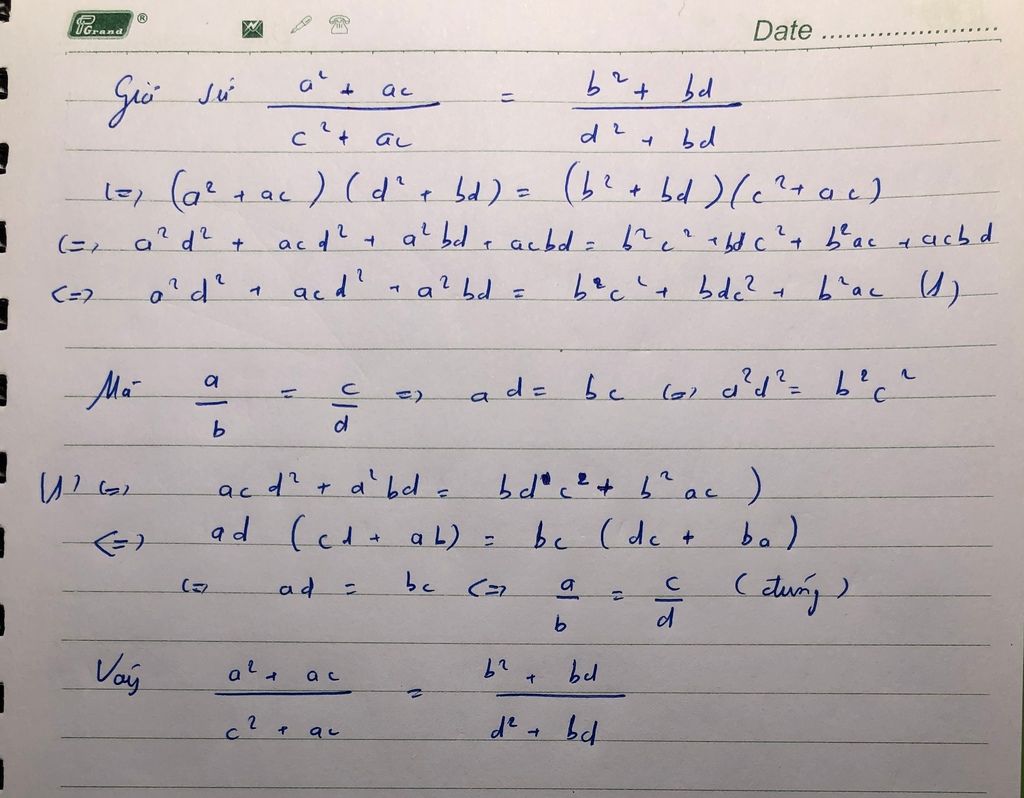 PGrand ® Date ........................
Giả sử (a² + ac)/(c² + ac) = (b² + bd)/(d² + bd)
(=) (a² + ac)(d² + bd) = (b² + bd)(c² + ac)
(=) a²d² + acd² + a²bd + acbd = b²c² + bdc² + b²ac + acbd
<=> a²d² + acd² + a²bd = b²c² + bdc² + b²ac (1)
Mà a/b = c/d => ad = bc (=) a²d² = b²c²
(1) (=) acd² + a²bd = bdc² + b²ac )
<=> ad (cd + ab) = bc (dc + ba)
(=) ad = bc <=> a/b = c/d (đúng)
Vậy (a² + ac)/(c² + ac) = (b² + bd)/(d² + bd)